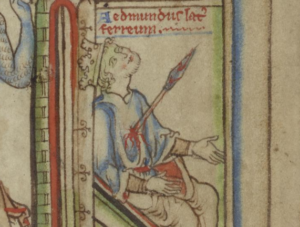 Aedmundus lat
ferreum